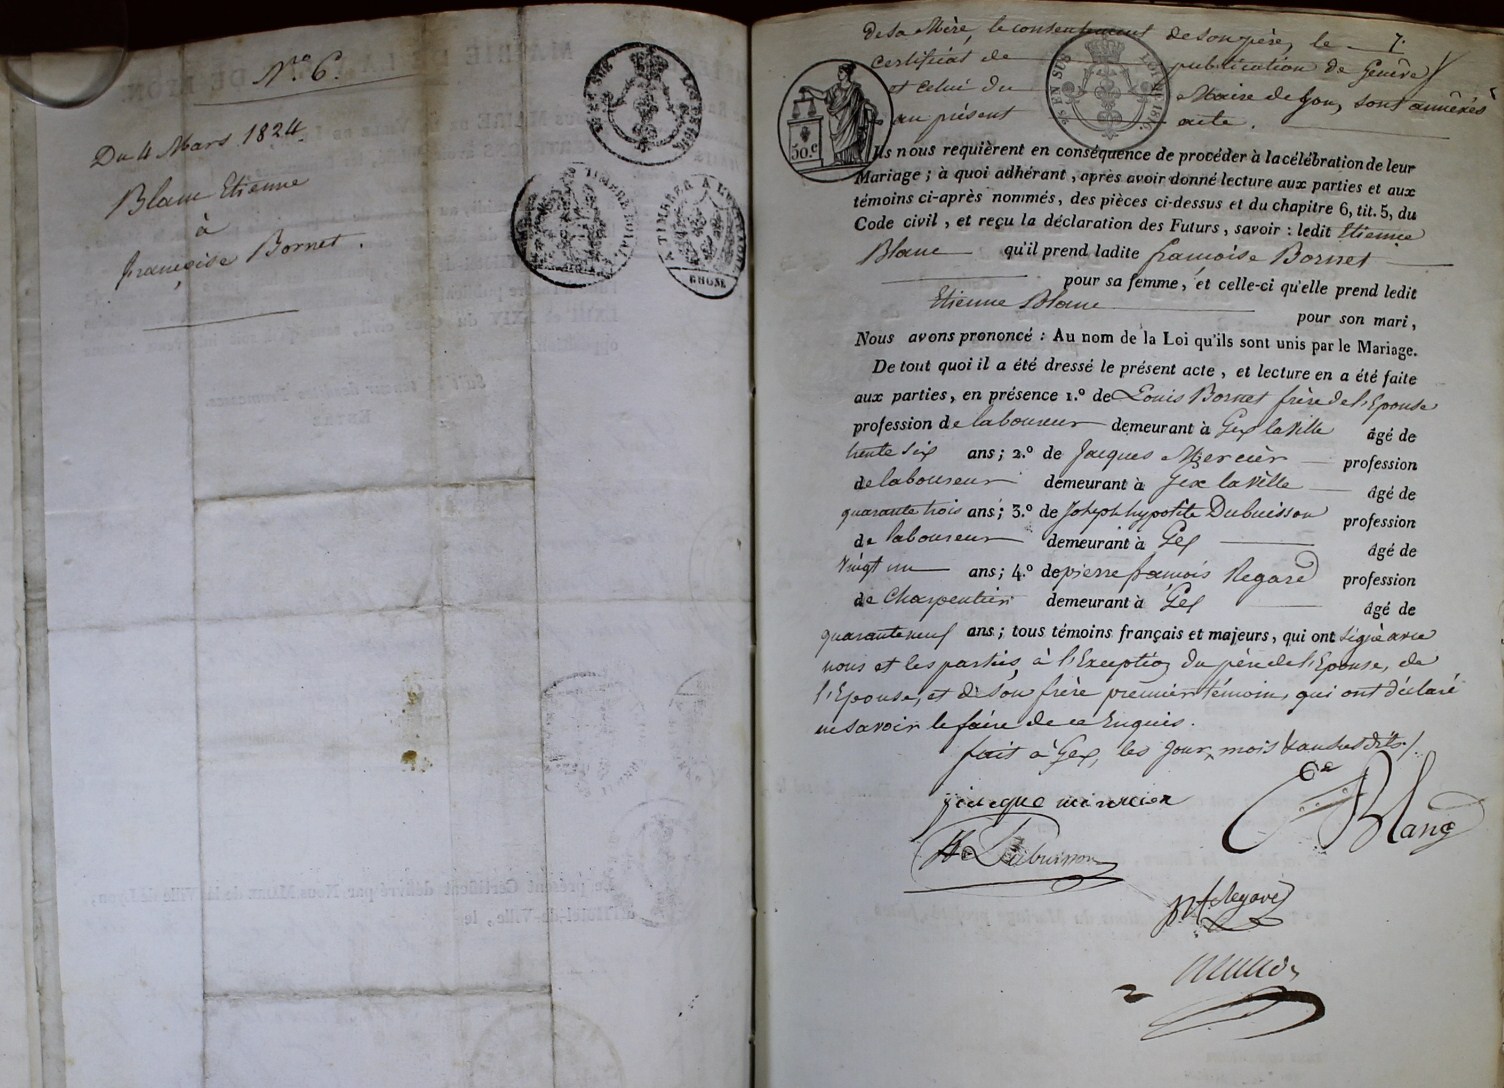 N.ro 6.
Du 4 Mars 1824
Blanc Etienne
à
françoise Bornet.
25 EN SUS
A TIMBRER A L'EXTRAORD.
RHONE
Le présent Certificat délivré par Nous MAIRE de la Ville de Lyon,
à l'Hôtel-de-Ville, le
7.
de sa Mère, le consentement de son père, le
certificat de publication de Genève
et celui du Maire de Lyon, sont annêxés
au présent acte.
50.c
25 EN SUS
Ils nous requièrent en conséquence de procéder à la célébration de leur
Mariage ; à quoi adhérant, après avoir donné lecture aux parties et aux
témoins ci-après nommés, des pièces ci-dessus et du chapitre 6, tit. 5, du
Code civil, et reçu la déclaration des Futurs, savoir : ledit Etienne
Blanc qu'il prend ladite françoise Bornet
pour sa femme, et celle-ci qu'elle prend ledit
Etienne Blanc
pour son mari,
Nous avons prononcé : Au nom de la Loi qu'ils sont unis par le Mariage.
De tout quoi il a été dressé le présent acte, et lecture en a été faite
aux parties, en présence 1.º de Louis Bornet frère de l'Epouse
profession de laboureur demeurant à Gex la ville âgé de
trente six ans ; 2.º de Jacques Mercier profession
de laboureur demeurant à Gex la ville âgé de
quarante trois ans ; 3.º de Joseph hypolite Dubuisson profession
de laboureur demeurant à Gex âgé de
vingt un ans ; 4.º de pierre françois Regard profession
de Charpentier demeurant à Gex âgé de
quarante neuf ans ; tous témoins français et majeurs, qui ont signé avec
nous et les parties, à l'Exception du père de l'Epouse, de
l'Epouse, et de son frère premier témoin, qui ont déclaré
ne savoir le faire de ce Enquis.
fait à Gex, les jour, mois & an susdits/.
jacque mercier
Ee Blanc
he Dubuisson
pf Regard